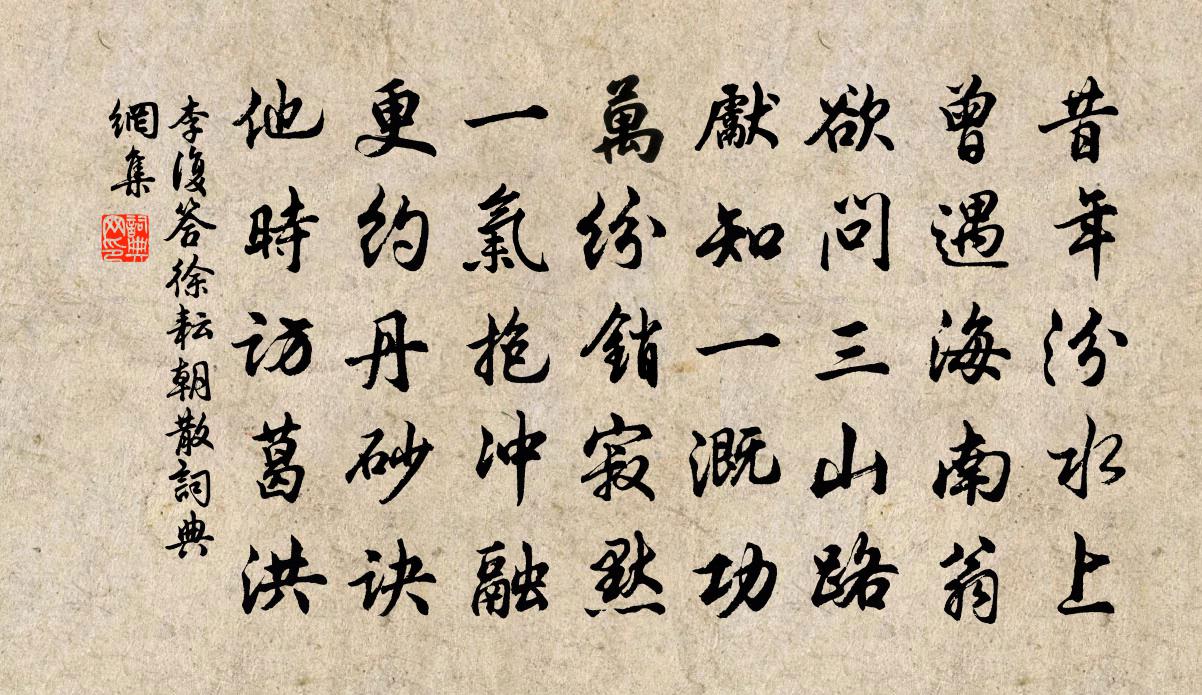 昔年汾水上
曾遇海南翁
欲問三山路
獻知一溉功
萬紛銷寂默
一氣抱沖融
更約丹砂訣
他時訪葛洪
李復答徐耘朝散詞典
網集
詞典
网印